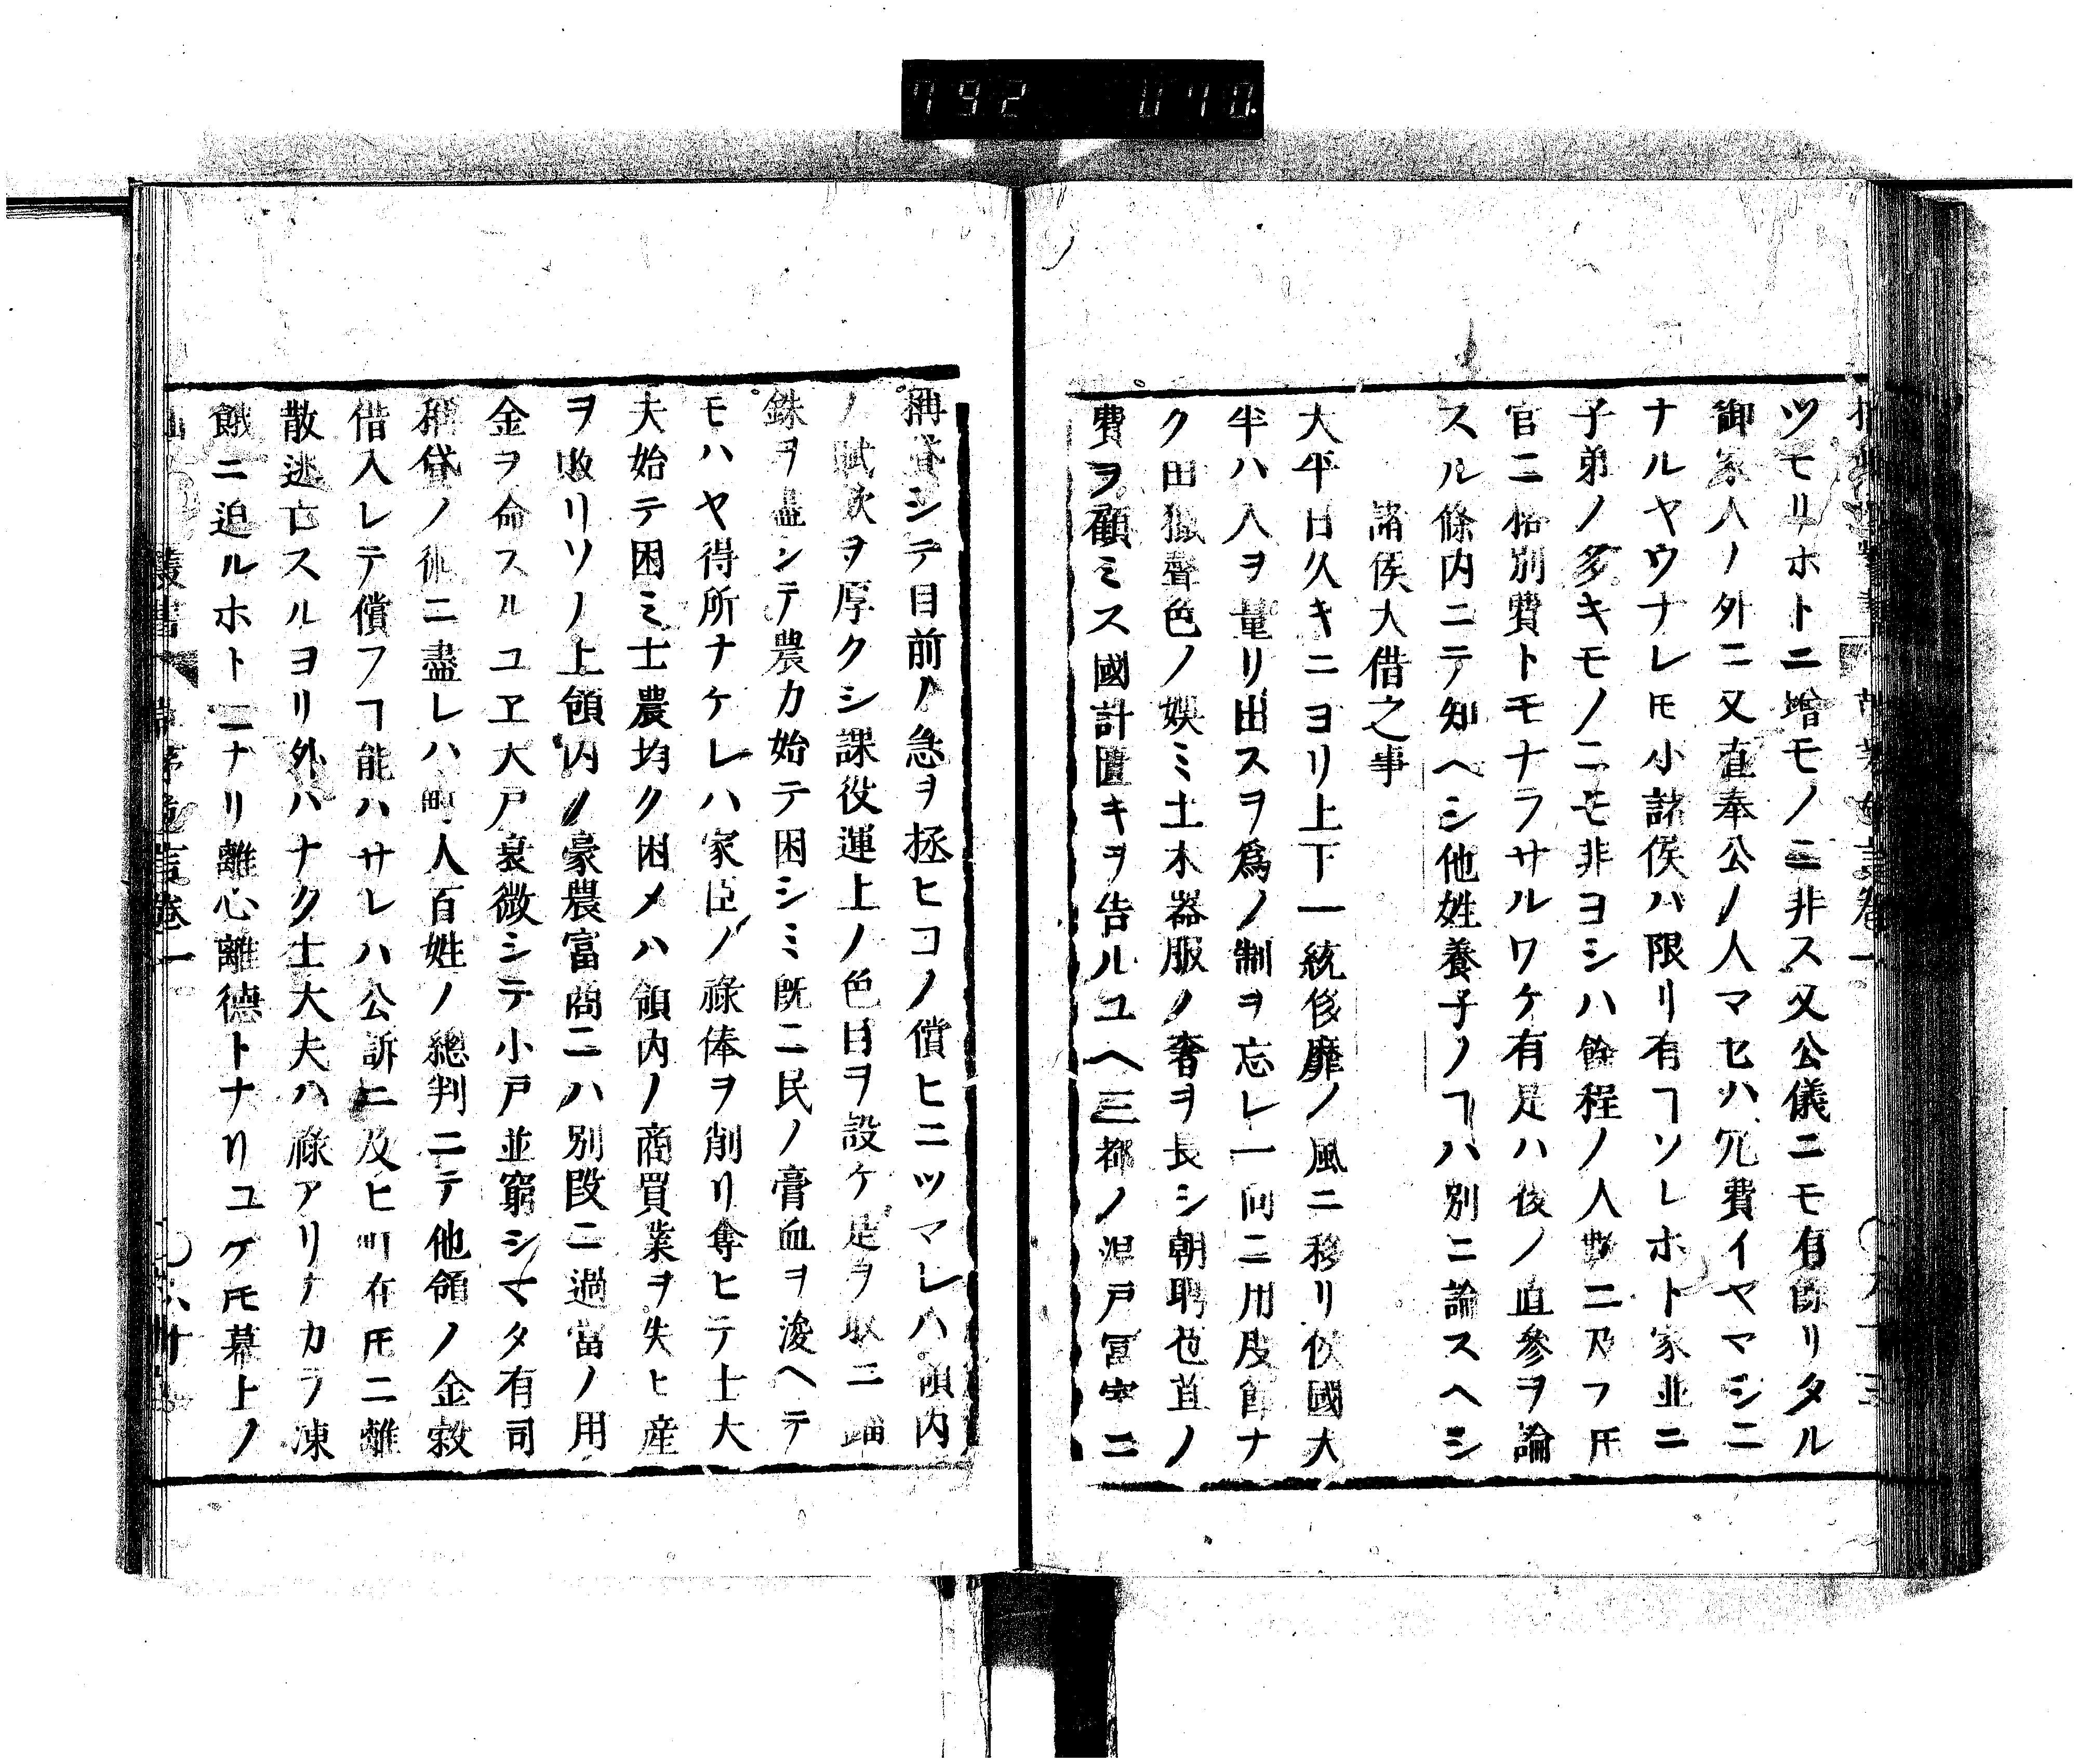 792 070.
ツモリホトニ増モノニ非ス又公儀ニモ有餘リタル
御家人ノ外ニ又直奉公ノ人マセハ冗費イヤマシニ
ナルヤウナレ𪜈小諸侯ハ限リ有ヿソレホト家並ニ
子弟ノ多キモノニモ非ヨシハ餘程ノ人數ニ及フ𪜈
官ニ格別費トモナラサルワケ有是ハ後ノ直參ヲ論
スル條内ニテ知ヘシ他姓養子ノヿハ別ニ論スヘシ
諸侯大借之事
大平日久キニヨリ上下一統侈靡ノ風ニ移リ侯國大
半ハ入ヲ量リ出スヲ爲ノ制ヲ忘レ一向ニ用度節ナ
ク田獵聲色ノ娯ミ土木器服ノ奢ヲ長シ朝聘苞苴ノ
費ヲ顧ミス國計匱キヲ告ルユヘ三都ノ温戸冨室ニ
稱貸シテ目前ノ急ヲ拯ヒコノ償ヒニツマレハ領内
ノ賦歛ヲ厚クシ課役運上ノ色目ヲ設ケ是ヲ取ニ錙
銖ヲ盡シテ農力始テ困シミ既ニ民ノ膏血ヲ浚ヘテ
モハヤ得所ナケレハ家臣ノ祿俸ヲ削リ奪ヒテ士大
夫始テ困ミ士農均ク困メハ領内ノ商買業ヲ失ヒ産
ヲ敗リソノ上領内ノ豪農富商ニハ別段ニ過當ノ用
金ヲ命スルユヱ大戸衰微シテ小戸並窮シマタ有司
稱貸ノ術ニ盡レハ町人百姓ノ總判ニテ他領ノ金穀
借入レテ償フヿ能ハサレハ公訴ニ及ヒ町在𪜈ニ離
散逃亡スルヨリ外ハナク士大夫ハ祿アリナカラ凍
餓ニ迫ルホトニナリ離心離德トナリユケ𪜈幕上ノ